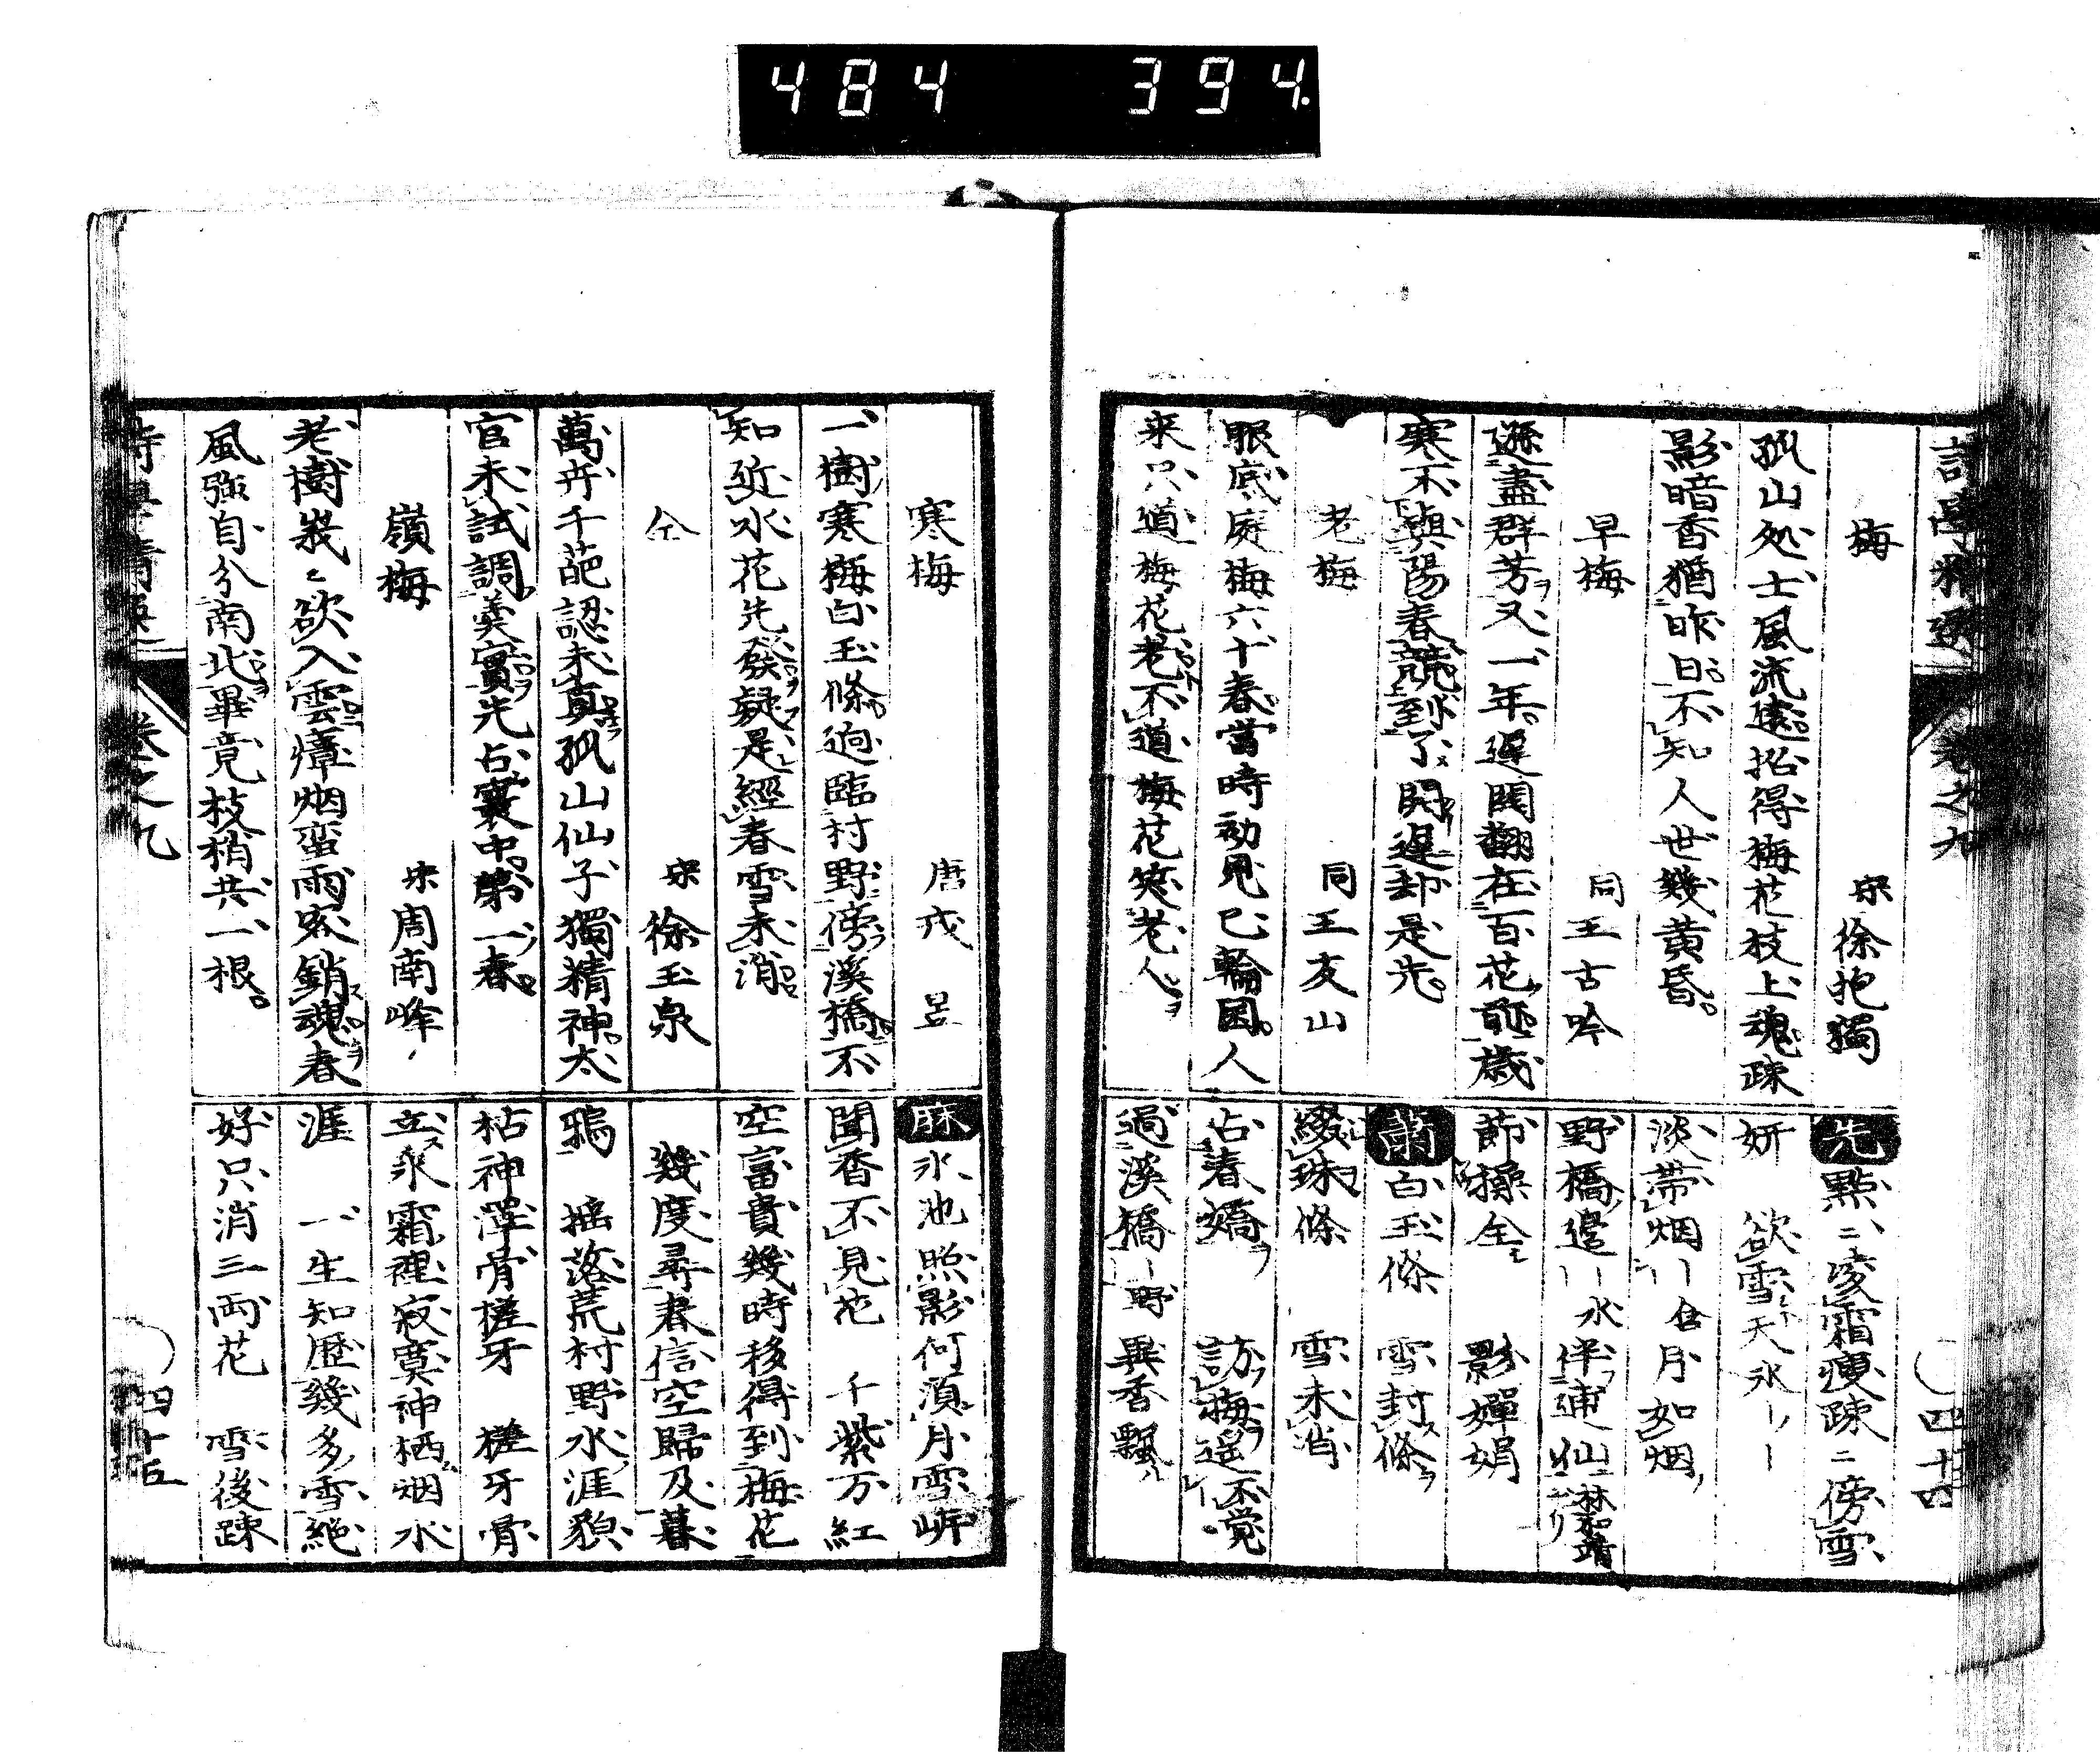 484 394.
卷之九
四十四
梅 宋 徐抱獨
孤山処士風流遠招得梅花枝上魂疎
影暗香猶昨日不知人世幾黄昏
早梅 同 王古吟
遜盡群芳又一年遅開翻在百花前歳
寒不與陽春競到了開遅却是先
老梅 同 王友山
眼底庭梅六十春當時初見已輪囷人
来只道梅花老不道梅花笑老人
先 點〻凌霜痩疎〻傍雪
妍 欲雪天水
淡帯烟含月如烟
野橋邉水伴逋仙林和靖
節操全 影嬋娟
蕭 白玉條 雪封條
綴珠條 雪未消
占春嬌 訪梅遥不覚
過溪橋野 異香飄
寒梅 唐 戎昱
一樹寒梅白玉條逈臨村野傍溪橋不
知近水花先發疑是經春雪未消
仝 宋 徐玉泉
萬卉千葩認未真孤山仙子獨精神太
官未試調羹實先占寰中第一春
嶺梅 宋 周南峰
老樹峩〻欲入雲瘴烟蛮雨客銷魂春
風強自分南北畢竟枝梢共一根
麻 氷池照影何須月雪岍
聞香不見花 千紫万紅
空富貴幾時移得到梅花
幾度尋春信空歸及暮
鴉 揺落荒村野水涯貌
枯神澤骨槎牙 槎牙骨
立氷霜裡寂寞神栖烟水
涯 一生知歴幾多雪絶
好只消三両花 雪後疎
卷之九
四十五